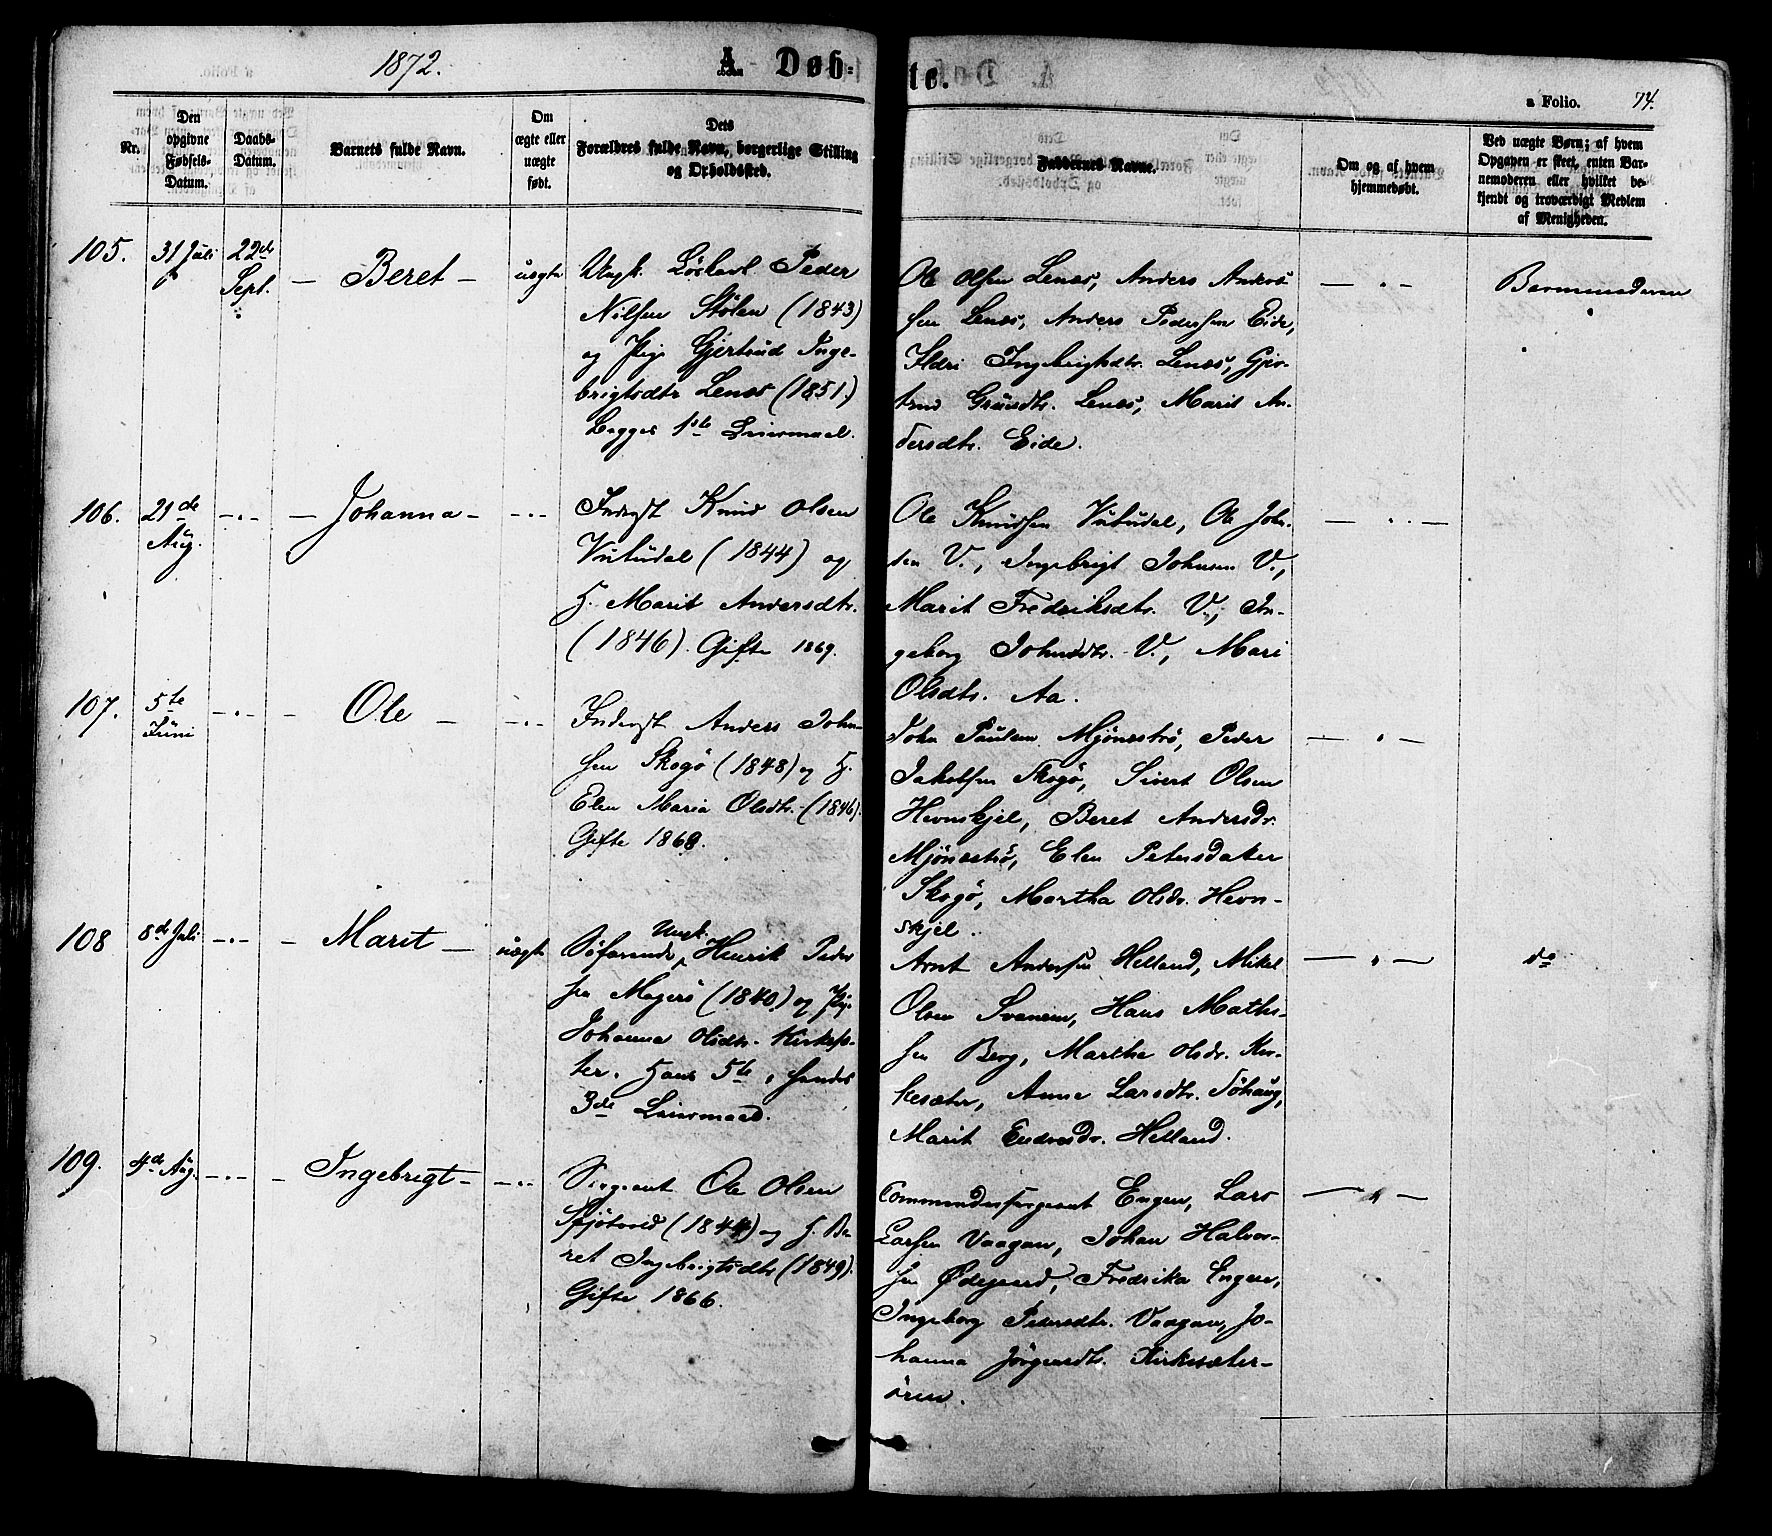 1872.
A Døb-
te.
a Folio. 74.
Nr.
Den
opgivne
Fødsels-
Datum.
Daabs-
Datum.
Barnets fulde Navn.
Om
ægte eller
uægte
født.
Dets
Forældres fulde Navn, borgerlige Stilling
og Opholdssted.
Faddernes Navne.
Om og af hvem
hjemmedøbt.
Ved uægte Børn; af hvem
Opgaven er skeet, enten Bar-
nemoderen eller hvilket be-
kjendt og troværdigt Medlem
af Menigheden.
105.
31 Juli
22de
Sept.
Beret
uægte
Ungk. Peder
Nilsen Stölen (1843)
og Pige Gjertrud Inge-
brigtsdtr Lenes (1851.)
Begges 1ste Leiermaal.
Ole Olsen Lenes, Anders Anders-
sen Lenes, Anders Pedersen Eide,
Ildri Ingebrigtsdtr. Lenes, Gjer-
trud Lenes, Marit An-
dersdtr. Eide.
Barnemoderen
106.
21de
Aug.
Johanna
Inderst Knud Olsen
Vutudal (1844) og
H. Marit Andersdtr.
(1846). Gifte 1869.
Ole Knudsen Vutudal, Ole John-
sen V., Ingebrigt Johnsen V.,
Marit Fredriksdtr. V., In-
geborg Johnsdtr. V., Mari
Olsdtr. Aa.
107.
5te
Juni
Ole
Inderst Anders John-
sen Skogö (1848) og H.
Elen Maria Olsdtr. (1846).
Gifte 1868.
John Paulsen Mjöneströ, Peder
Jakobsen Skogö, Sivert Olsen
Hevnskjel, Beret Andersdr.
Mjöneströ, Elen Petersdatter
Skogö, Martha Olsdr. Hevn-
skjel.
108
8de Juli
Marit
uægte
Ungk.
Söfarende Henrik Peder
sen Magerö (1840) og Pige
Johanna Olsdtr. Kirkesæ-
ter. Hans 5te, hendes
3de Leiermaal.
Arnt Andersen Helland, Mikel
Olsen Svanem, Hans Mathi-
sen Berg, Marthe Olsdr. Kir-
kesæter, Anne Larsdtr. Töhaug,
Marit Endresdr. Helland.
do
109.
4de Aug.
Ingebrigt
Sergeant Ole Olsen
Stjötvold (1844) og H. Be-
ret Ingebrigtsdtr (1849).
Gifte 1866.
Commandersergeant Engen, Lars
Larsen Vaagan, Johan Halvor-
sen Ødegaard, Fredrika Engen,
Ingeborg Pedersdtr. Vaagan, Jo-
hanna Jörgensdtr. Kirkesæter-
ören.